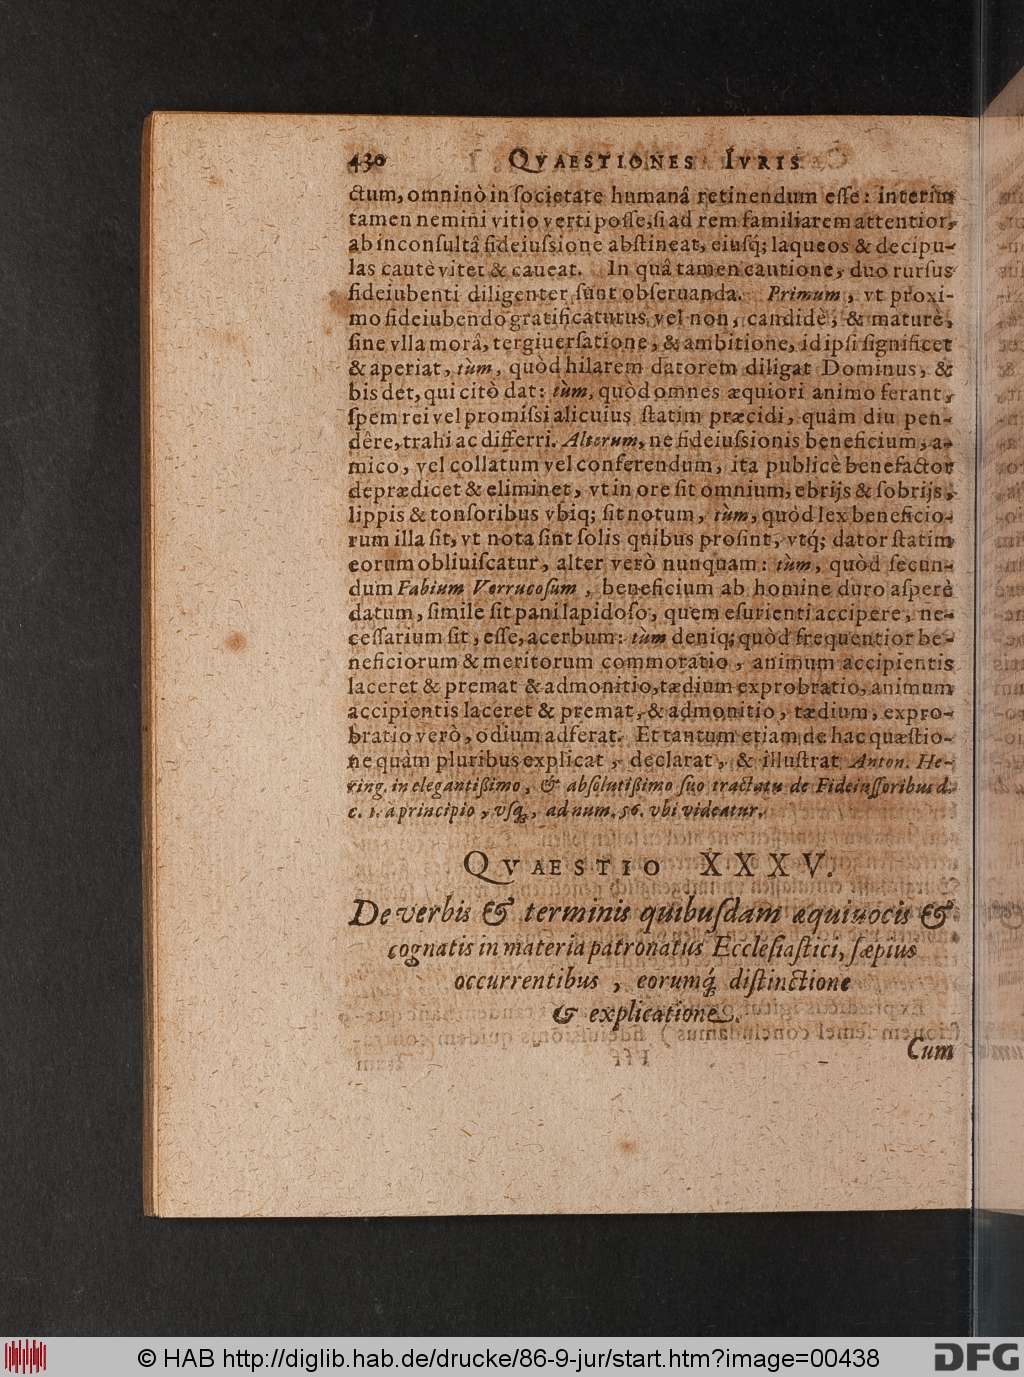 430 QVAESTIONES IVRIS
ctum, omninò in ſocietate humanâ retinendum eſſe: interim
tamen nemini vitio verti poſſe, ſi ad rem familiarem attentior,
ab inconſultâ fideiuſsione abſtineat, eiuſq́; laqueos & decipu-
las cautè vitet & caueat. In quâ tamen cautione, duo rurſus
fideiubenti diligenter ſunt obſeruanda. Primum, vt proxi-
mo fideiubendo gratificaturus vel non, candidè, & maturè,
ſine vlla morâ, tergiuerſatione, & ambitione, id ipſi ſignificet
& aperiat, tùm, quòd hilarem datorem diligat Dominus, &
bis det, qui citò dat: tùm, quòd omnes æquiori animo ferant,
ſpem rei vel promiſsi alicuius ſtatim præcidi, quâm diu pen-
dêre, trahi ac differri. Alterum, ne fideiuſsionis beneficium, a-
mico, vel collatum vel conferendum, ita publicè benefactor
deprædicet & eliminet, vt in ore ſit omnium, ebrijs & ſobrijs,
lippis & tonſoribus vbiq; ſit notum, tùm, quòd lex beneficio-
rum illa ſit, vt nota ſint ſolis quibus proſint, vtq́; dator ſtatim
eorum obliuiſcatur, alter verò nunquam: tùm, quòd ſecun-
dum Fabium Verrucoſum, beneficium ab homine duro aſperè
datum, ſimile ſit pani lapidoſo, quem eſurienti accipere, ne-
ceſſarium ſit, eſſe, acerbum: tùm deniq; quòd frequentior be-
neficiorum & meritorum commoratio, animum accipientis
laceret & premat & admonitio, tædium exprobratio, animum
accipientis laceret & premat, & admonitio, tædium, expro-
bratio verò, odium adferat. Et tantum etiam de hac quæſtio-
ne quàm pluribus explicat, declarat, & illuſtrat Anton. He-
ring. in elegantißimo, & abſolutißimo ſuo tractatu de Fideiuſſoribus d.
c. 1. à principio, vſq́, ad num. 56. vbi videatur.
QVAESTIO XXXV.
De verbis & terminis quibuſdam æquiuocis &
cognatis in materia patronatus Eccleſiaſtici, ſæpius
occurrentibus, eorumq́ diſtinctione
& explicatione.
Cum
© HAB http://diglib.hab.de/drucke/86-9-jur/start.htm?image=00438
DFG